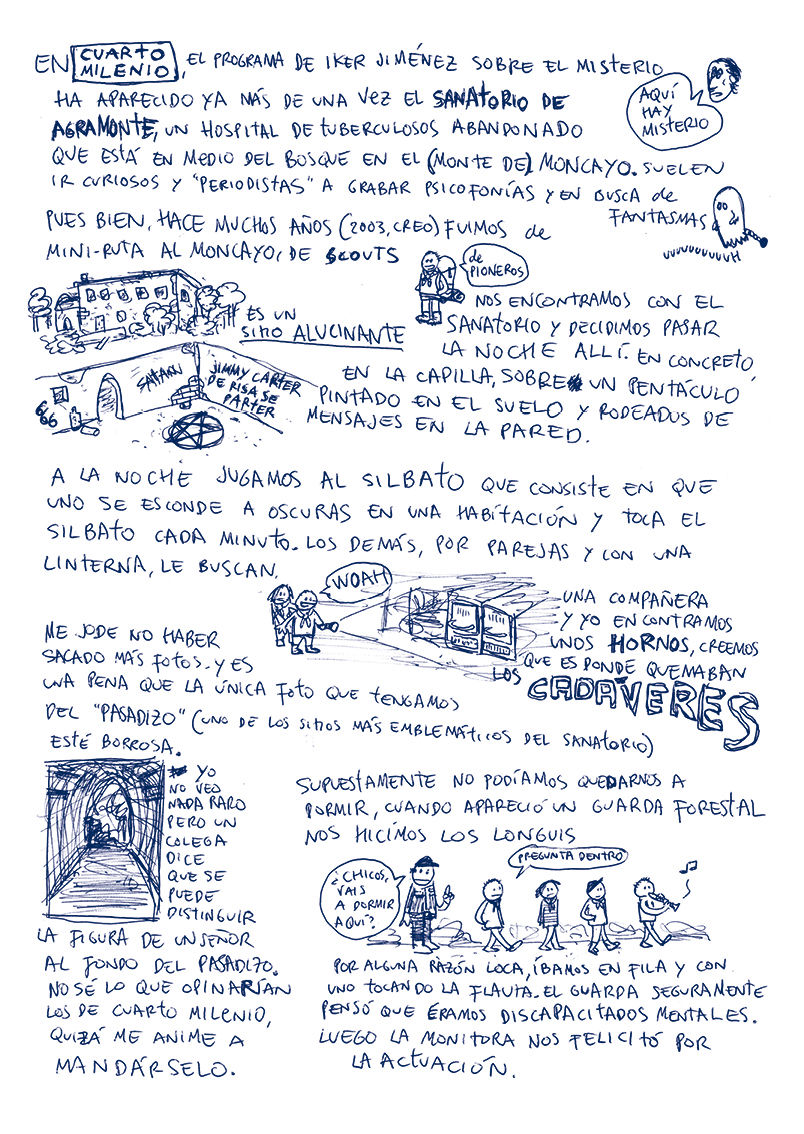 EN CUARTO MILENIO, EL PROGRAMA DE IKER JIMÉNEZ SOBRE EL MISTERIO
HA APARECIDO YA MÁS DE UNA VEZ EL SANATORIO DE
AGRAMONTE, UN HOSPITAL DE TUBERCULOSOS ABANDONADO
QUE ESTÁ EN MEDIO DEL BOSQUE EN EL (MONTE DE) MONCAYO. SUELEN
IR CURIOSOS Y "PERIODISTAS" A GRABAR PSICOFONÍAS Y EN BUSCA de
FANTASMAS
AQUÍ
HAY
MISTERIO
UUUUUUUUUH
PUES BIEN, HACE MUCHOS AÑOS (2003, CREO) FUIMOS de
MINI-RUTA AL MONCAYO, DE SCOUTS
de
PIONEROS
NOS ENCONTRAMOS CON EL
SANATORIO Y DECIDIMOS PASAR
LA NOCHE ALLÍ. EN CONCRETO
EN LA CAPILLA, SOBRE UN PENTÁCULO
PINTADO EN EL SUELO Y RODEADOS DE
MENSAJES EN LA PARED.
ES UN
SITIO ALUCINANTE
SATAN
JIMMY CARTER
DE RISA SE
PARTER
666
A LA NOCHE JUGAMOS AL SILBATO QUE CONSISTE EN QUE
UNO SE ESCONDE A OSCURAS EN UNA HABITACIÓN Y TOCA EL
SILBATO CADA MINUTO. LOS DEMÁS, POR PAREJAS Y CON UNA
LINTERNA, LE BUSCAN.
WOAH
UNA COMPAÑERA
Y YO ENCONTRAMOS
UNOS HORNOS, CREEMOS
QUE ES DONDE QUEMABAN
LOS CADÁVERES
ME JODE NO HABER
SACADO MÁS FOTOS. Y ES
UNA PENA QUE LA ÚNICA FOTO QUE TENGAMOS
DEL "PASADIZO" (UNO DE LOS SITIOS MÁS EMBLEMÁTICOS DEL SANATORIO)
ESTÉ BORROSA.
YO
NO VEO
NADA RARO
PERO UN
COLEGA
DICE
QUE SE
PUEDE
DISTINGUIR
LA FIGURA DE UN SEÑOR
AL FONDO DEL PASADIZO.
NO SÉ LO QUE OPINARÍAN
LOS DE CUARTO MILENIO,
QUIZÁ ME ANIME A
MANDÁRSELO.
SUPUESTAMENTE NO PODÍAMOS QUEDARNOS A
DORMIR, CUANDO APARECIÓ UN GUARDA FORESTAL
NOS HICIMOS LOS LONGUIS
¿CHICOS,
VAIS
A DORMIR
AQUÍ?
PREGUNTA DENTRO
POR ALGUNA RAZÓN LOCA, ÍBAMOS EN FILA Y CON
UNO TOCANDO LA FLAUTA. EL GUARDA SEGURAMENTE
PENSÓ QUE ÉRAMOS DISCAPACITADOS MENTALES.
LUEGO LA MONITORA NOS FELICITÓ POR
LA ACTUACIÓN.